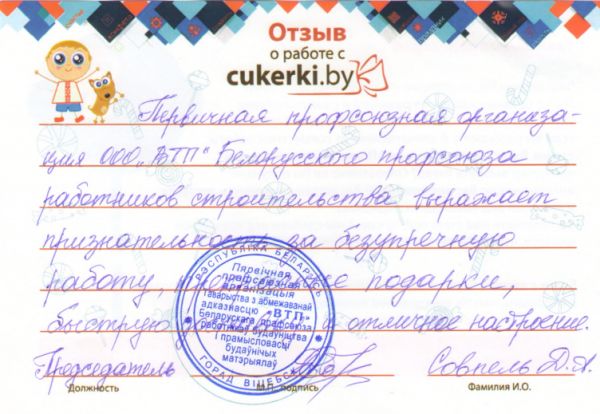 Отзыв
о работе с
cukerki.by
Первичная профсоюзная организа-
ция ООО „ВТП" Белорусского профсоюза
работников строительства выражает
признательность за безупречную
работу, подарки,
быструю и отличное настроение.
Председатель Совпель Д.А.
Должность М.П. подпись Фамилия И.О.
РЭСПУБЛІКА БЕЛАРУСЬ
Пярвічная
прафсаюзная
арганізацыя
Таварыства з абмежаванай
адказнасцю „ВТП"
Беларускага прафсаюза
работнікаў будаўніцтва
і прамысловасці
будаўнічых
матэрыялаў
ГОРАД ВІЦЕБСК